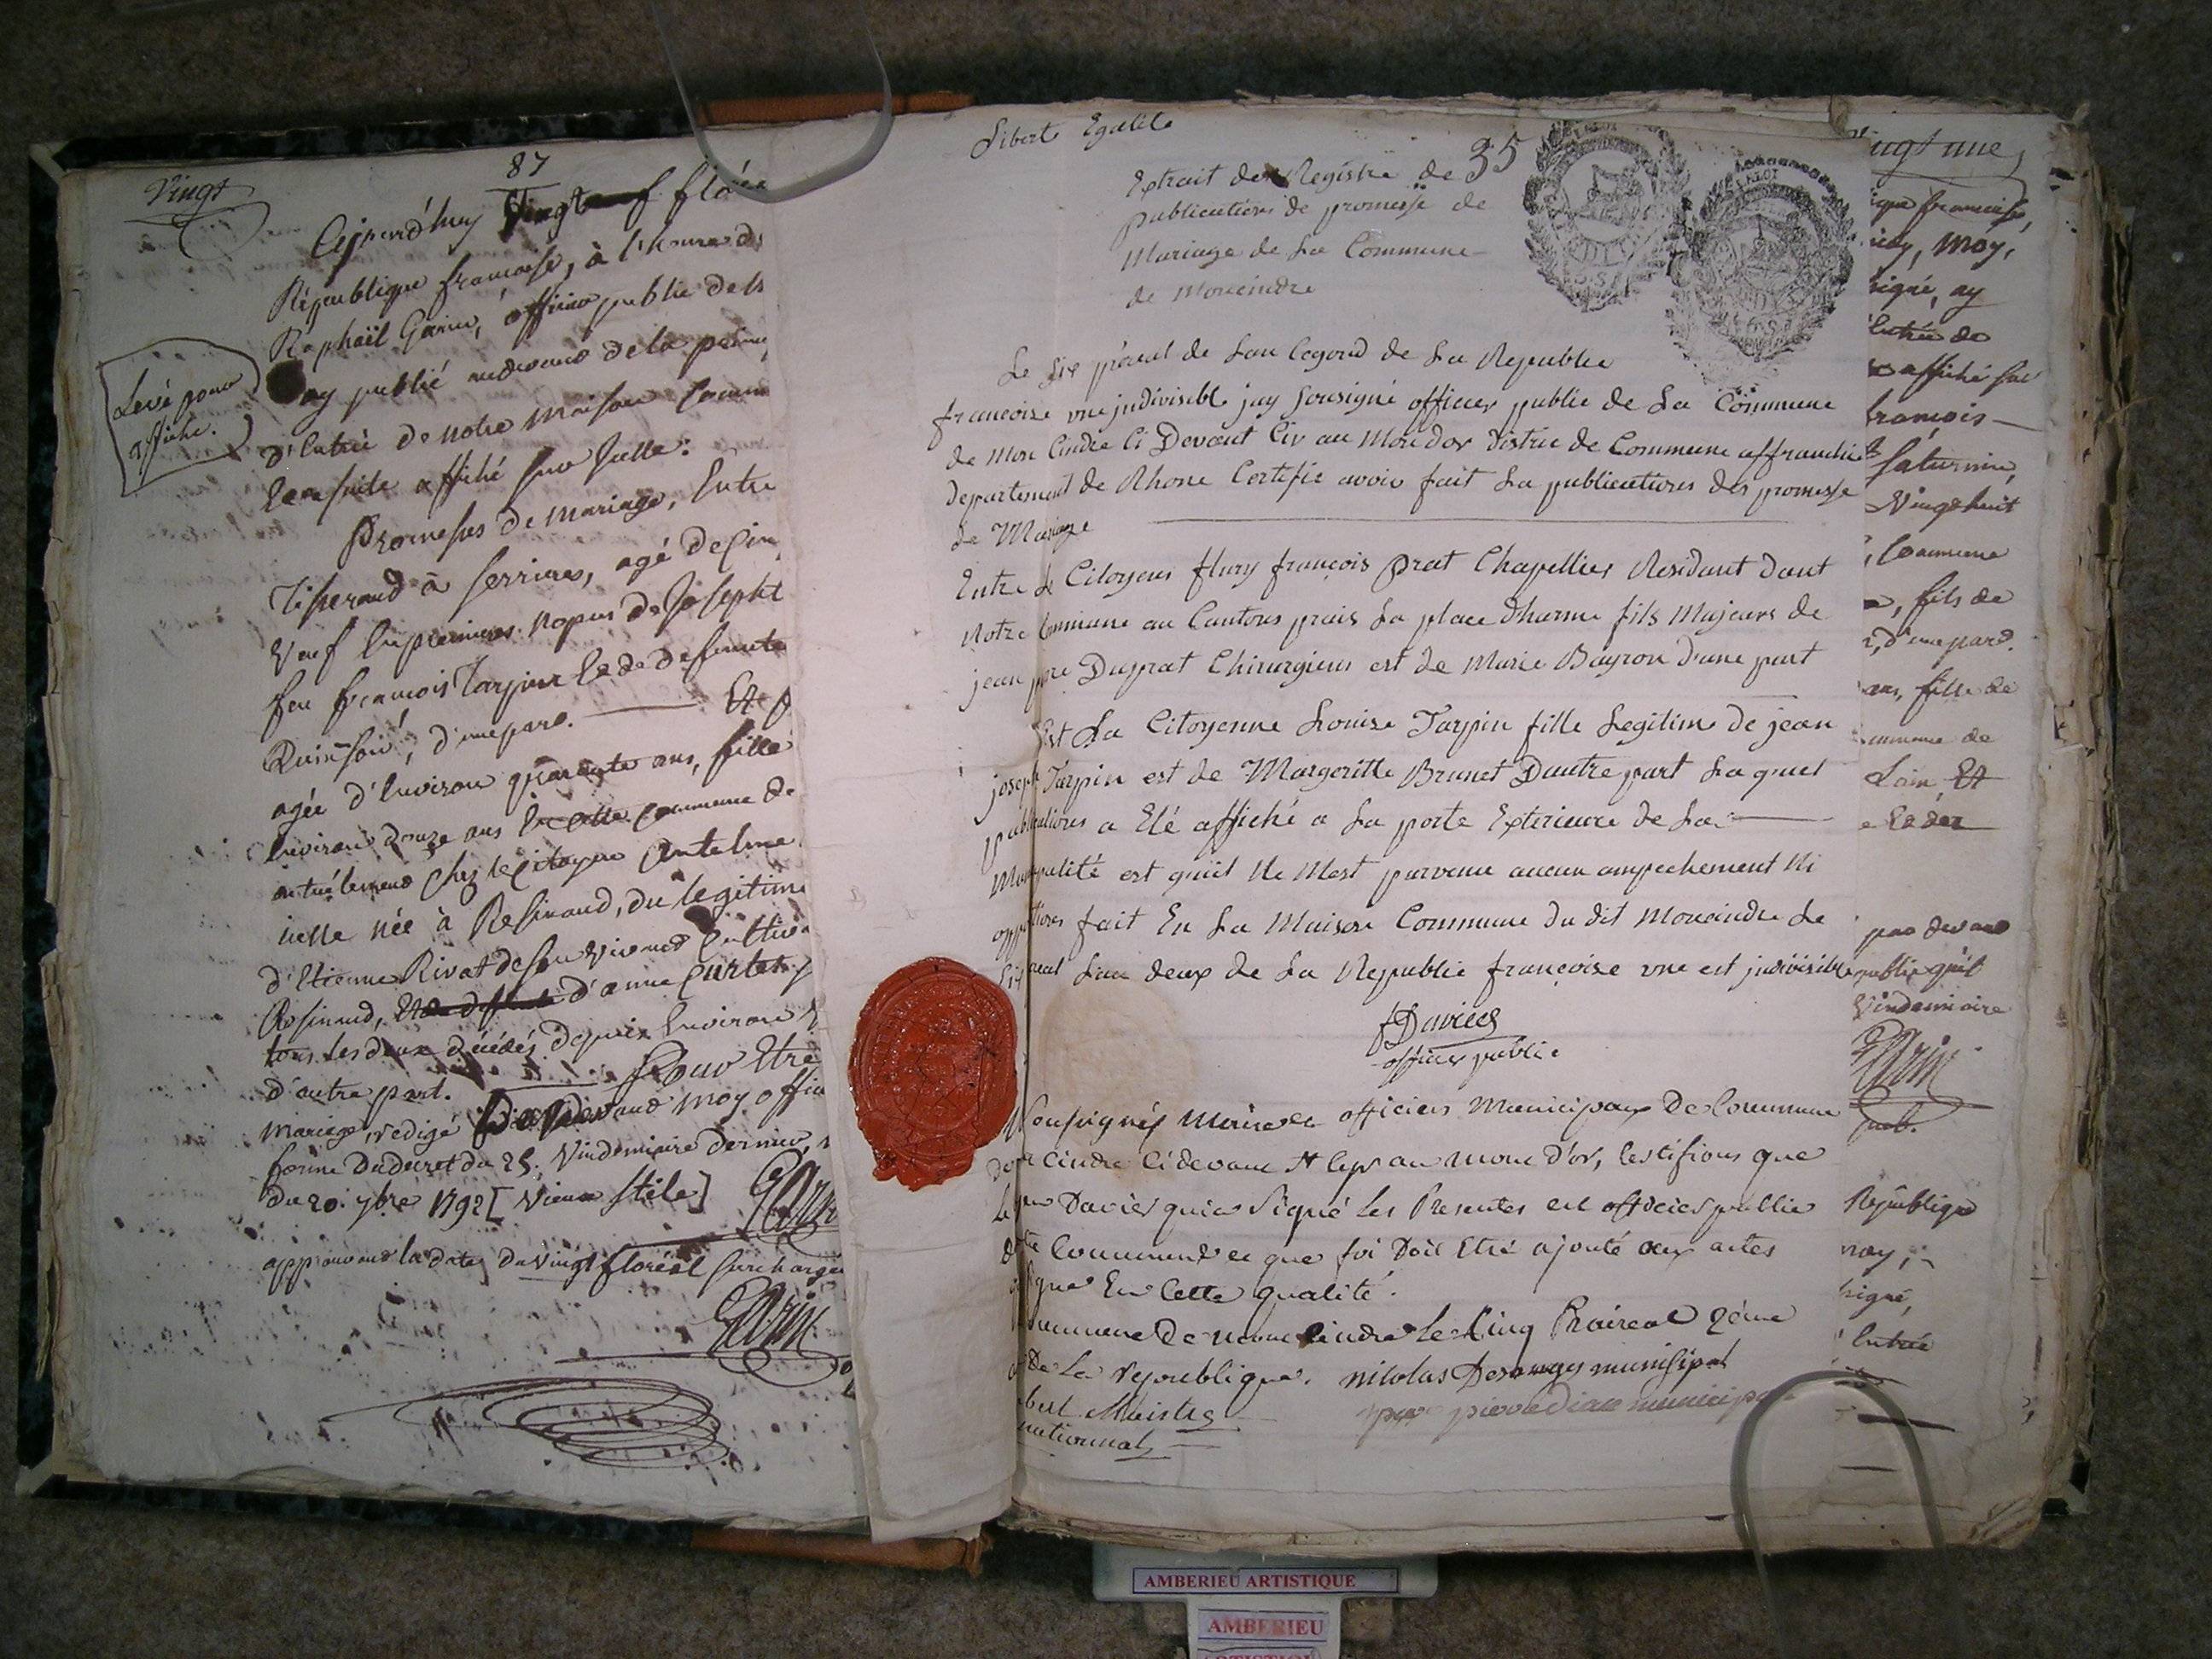 Vingt
87
Cejourd'huy Vingt floré
République francaise, à l'heure d
Raphaël Garin, officier public de la
ay publié audevant de la
d'Entrée de notre Maison Comm
Ensuite affiché sur Icelle:
Levé pour
affiche.
Promesses de mariage, Entre
Tisserand à serrieres, agé de Cin
Veuf En premieres nopces de Josepht
feu francois Tarpin Et de defunte
d'une part. Et
agée d'Environ quarante ans, fille
Environ douze ans En Cette Commune de
actuélement chez le Citoyen Antelme
née à Resinand, du legitime
d'Etienne Rivat de son vivant Cultiva
Resinand, d'anne Curtet
tous les deux décédés depuis Environ
d'autre part. Pour Etre
mariage redigé pardevant moy offici
forme Du decret du 25. Vindemiaire dernier,
du 20. 7bre 1792 [Vieux stile]
Garin
approuvant la date du vingt floréal surchargée
Garin
Libert Egalite
35
Extrait des Registre de
publications de promesse de
Mariage de La Commune
de Moncindre
Le Six préreal de Lan Cegond de La Republic
francoise une jndivisible jay Sousigné officier public de La Commune
de Mon Cindre Ci Devant Cir au Mon dor Distric de Commune affranchie
departement de Rhone Certifie avoir fait La publications des promesse
de Mariage
Entre Le Citoyens flury françois Prat Chapellier Residant dant
Notre Commune au Cantons prais La place dharme fils Majeurs de
jean Duprat Chirurgiens est de Marie Bayron d'une part
Est La Citoyenne Louise Tarpin fille Legitime de jean
joseph Tarpin est de Margeritte Brunet Dautre part La quel
publications a Eté affiché a La porte Exterieure de La
palité est quil Ne Mest parvenu aucun ampechement Ni
fait En La Maison Commune du dit Moncindre Le
Lan deux de La Republic françoise une est jndivisible
f Davier
officier public
Soussignés Maire et officiers Municipaux De Commune
Cindre Cidevant St Cyr au Mont D'or, Certifions que
Davier qui a Signé Les Presentes est officier public
Commune et que foi Doit Etre ajouté aux actes
En Cette qualité.
De mont Cindre Le Cinq Praireal 2ème
De La republique. nicolas Desanges munisipal
municipal
national
ingt une
que francaise,
moy,
signé, ay
Entrée de
affiché sur
francois
saturnin,
Vingt huit
Commune
fils de
d'une part.
ans, fille de
commune de
Lain, Et
par devant
public qu'il
Vindemiaire
Garin
pub.
République
moy,
signé,
Entrée
AMBERIEU ARTISTIQUE
AMBERIEU
ARTISTIQUE